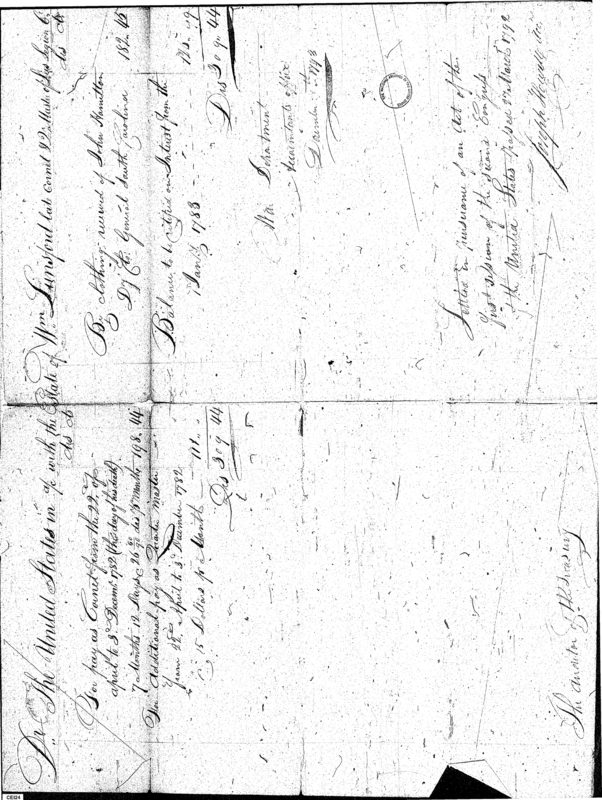 Dr. The United States in a/c with the Estate of Wm Lunsford late Cornet & Q Master of Lees Legion Cr.
Ds Cts
Ds Cts
For pay as Cornet from the 22. of
april to 3d Decemr 1782 (the day of his death)
7 Months 12 Days 26 80/90 ds pr Month 198. 44
Do Additional pay as Quater Master
from 22d April to 3. December 1782
15 Dollars pr Month 111. ..
Ds 309 44
By clothing received of John Hamilton
Dy Clo. General South Carolina 182. 45
Balance to be certified on Interest from the
1 Jany 1783
Ds 309. 44
War Department
Accountants Office
December 1793
Settled in pursuance of an Act of the
first session of the second Congress
of the United States passed March 1792
Joseph Howell
The Auditor of the Treasury
CE024